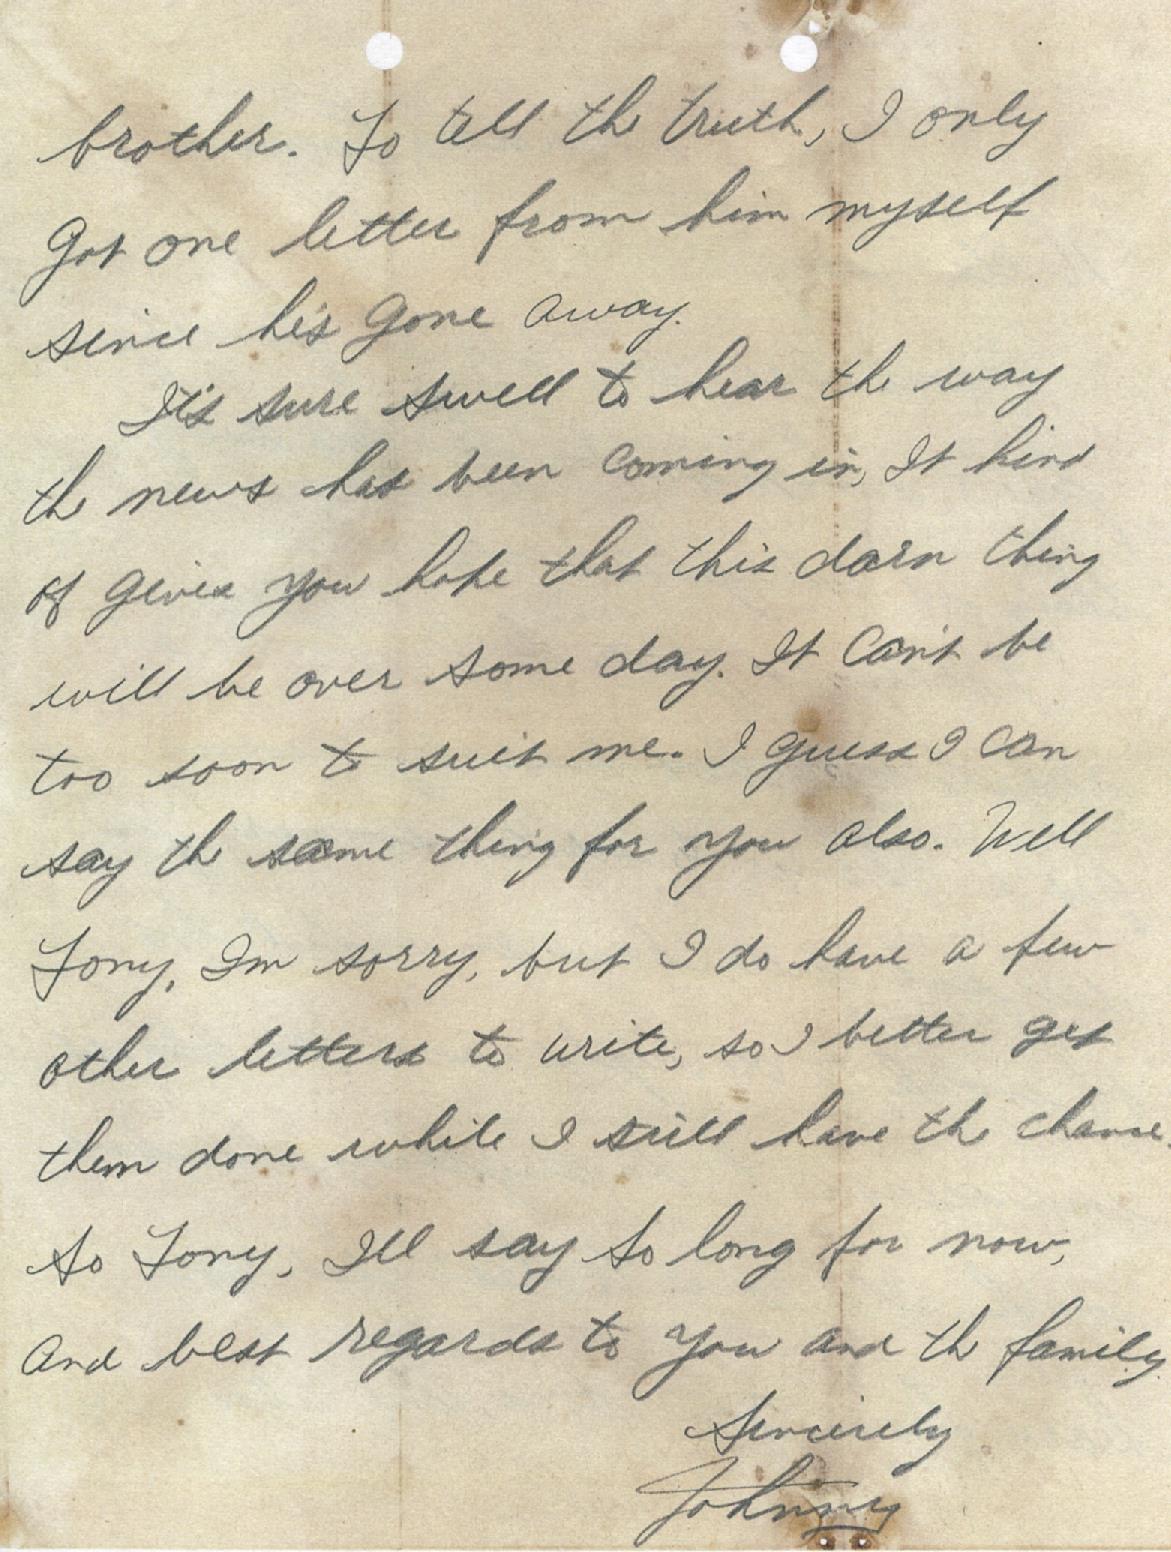 brother. To tell the truth, I only
Got one letter from him myself
since he's gone away.
It's sure swell to hear the way
the news has been coming in, It kind
of gives you hope that this darn thing
will be over some day. It can't be
too soon to suit me. I guess I can
say the same thing for you also. Well
Tony, I'm sorry, but I do have a few
other letters to write, so I better get
them done while I still have the chance.
So Tony, I'll say so long for now,
and best regards to you and the family.
Sincerely
Johnny